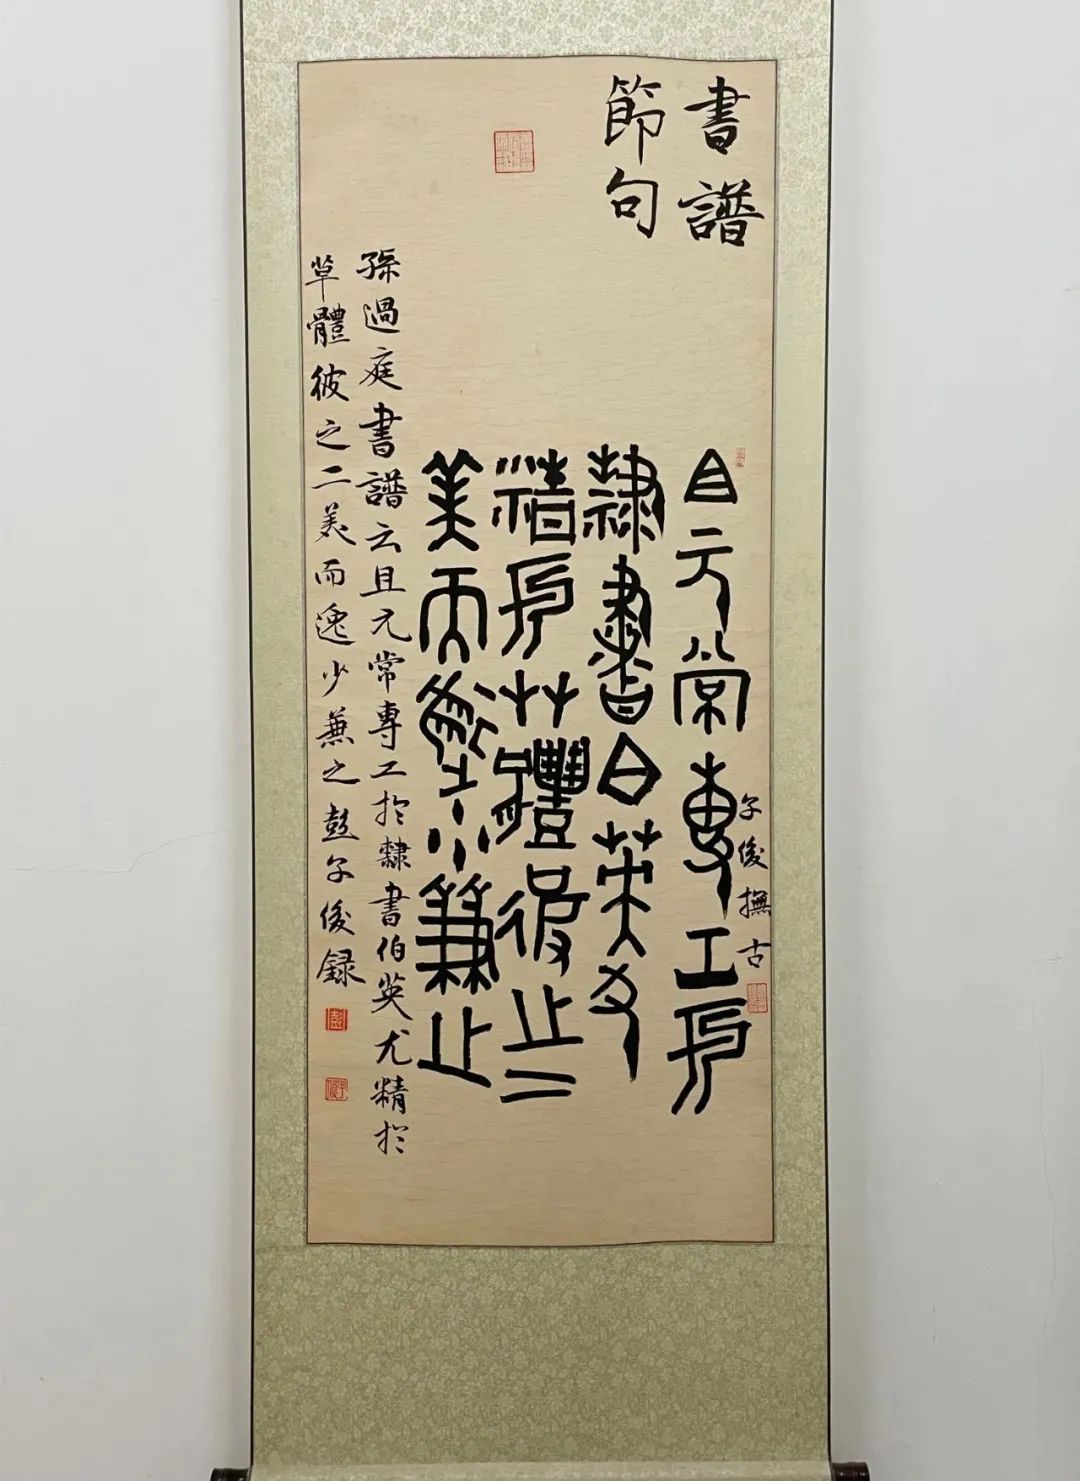 書譜
節句
且元常專工於
隸書白英尤
精於艸體彼之二
美而逸少兼之
子俊撫古
孫過庭書譜云且元常專工於隸書伯英尤精於
草體彼之二美而逸少兼之彭子俊錄
彭
子俊